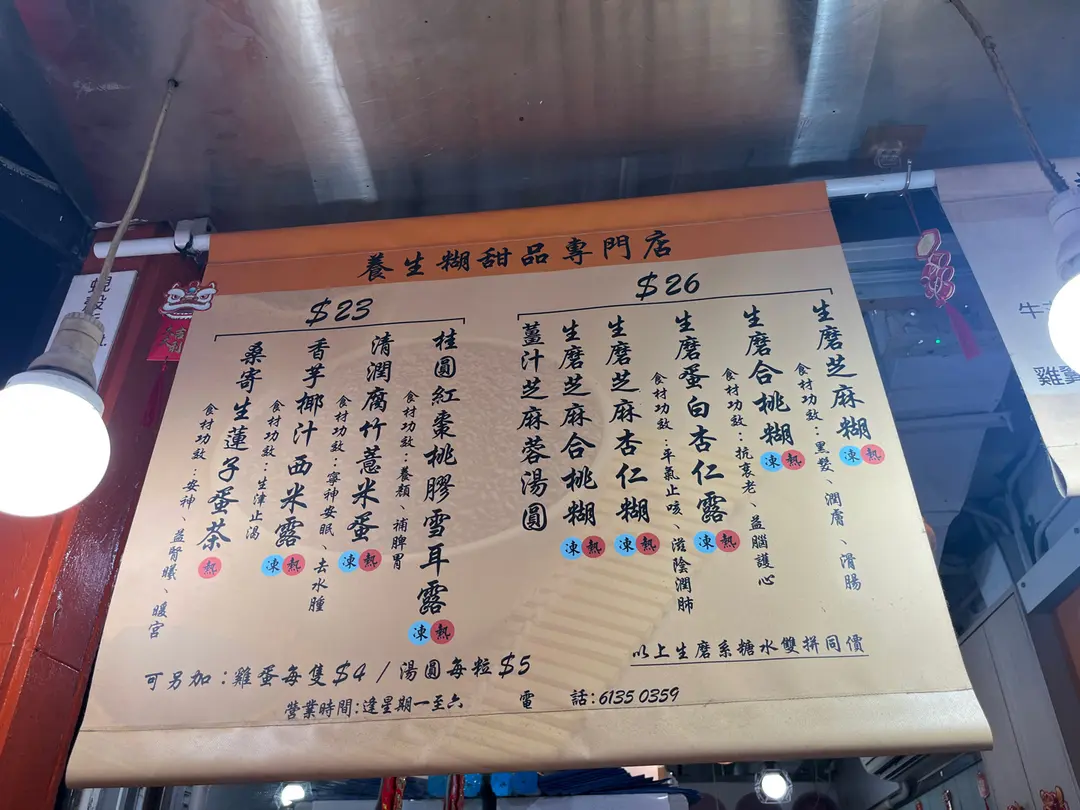 養生糊甜品專門店
$26
生磨芝麻糊
凍 熱
食材功效：黑髮、潤膚、滑腸
生磨合桃糊
凍 熱
食材功效：抗衰老、益腦護心
生磨蛋白杏仁露
凍 熱
食材功效：平氣止咳、滋陰潤肺
生磨芝麻杏仁糊
凍 熱
生磨芝麻合桃糊
凍 熱
薑汁芝麻蓉湯圓
$23
桂圓紅棗桃膠雪耳露
凍 熱
食材功效：養顏、補脾胃
清潤腐竹薏米蛋
凍 熱
食材功效：寧神安眠、去水腫
香芋椰汁西米露
凍 熱
食材功效：生津止渴
桑寄生蓮子蛋茶
熱
食材功效：安神、益腎曦、暖宮
以上生磨系糖水雙拼同價
可另加：雞蛋每隻$4 / 湯圓每粒$5
營業時間：逢星期一至六 電話：6135 0359
牛
雞翼